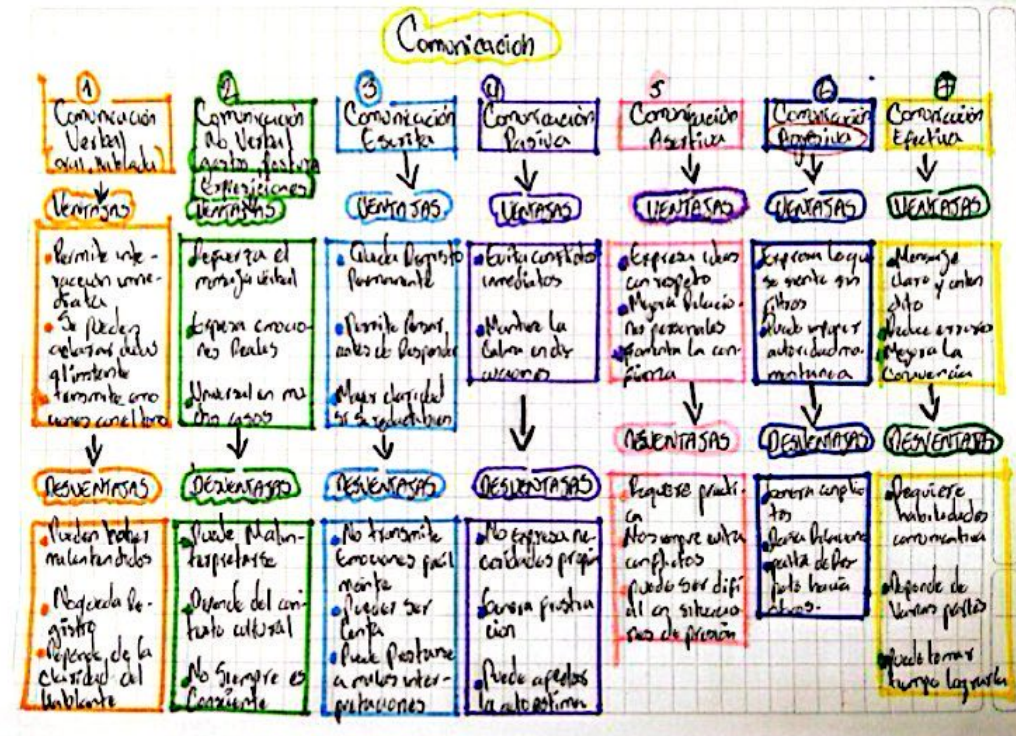 Comunicación
1
Comunicación
Verbal
(oral, hablada)
VENTAJAS
Permite inte-
racción inme-
diata
Se pueden
aclarar dudas
al instante
transmite emo
ciones con el tono
DESVENTAJAS
Pueden haber
malentendidos
No queda Re-
gistro
Depende de la
claridad del
hablante
2
Comunicación
No Verbal
gestos, postura
Expresiciones
VENTAJAS
Refuerza el
mensaje verbal
Expresa emocio-
nes Reales
Universal en mu
chos casos
DESVENTAJAS
Puede Malin-
terpretarse
Depende del con
texto cultural
No Siempre es
Consciente
3
Comunicación
Escrita
VENTAJAS
Queda Registro
Permanente
Permite Pensar
antes de Responder
Mayor claridad
si se redacta bien
DESVENTAJAS
No transmite
Emociones facil
mente
Puede ser
Lenta
Puede Prestarse
a malas inter-
pretaciones
4
Comunicación
Pasiva
VENTAJAS
Evita conflictos
inmediatos
Mantiene la
Calma en dis
cusiones
DESVENTAJAS
No Expresa ne-
cesidades propias
Genera frustra
ción
Puede afectar
la autoestima
5
Comunicación
Asertiva
VENTAJAS
Expresa ideas
con respeto
Mejora Relacio-
nes personales
fomenta la con-
fianza
DESVENTAJAS
Requiere prácti-
ca
No siempre evita
conflictos
puede ser difí
cil en situacio
nes de presión
6
Comunicación
Agresiva
VENTAJAS
Expresa lo que
se siente sin
filtros
Puede imponer
autoridad mo-
mentanea
DESVENTAJAS
Genera conflic
tos
falta de Res-
peto hacia
otros.
7
Comunicación
Efectiva
VENTAJAS
Mensaje
claro y enten
dido
Reduce errores
Mejora la
Convivencia
DESVENTAJAS
Requiere
habilidades
comunicativa
Depende de
Varias partes
puede tomar
tiempo lograrla